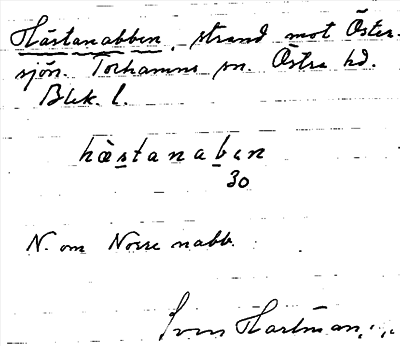 Hästanabben, strand mot Öster-
sjön. Torhamns sn. Östra hd.
Blek. l.
hàstanabɛn
30
N. om Norre nabb.
Sven Hartman